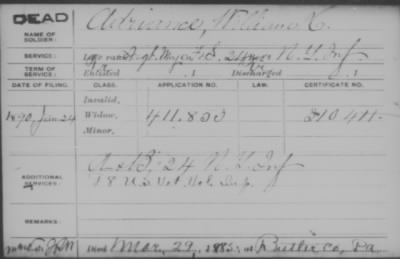 DEAD
NAME OF SOLDIER: Adriance, William H.
SERVICE: Late rank, Sergt. Major F.&S. 24 N.Y. Inf.
TERM OF SERVICE: Enlisted , 1 Discharged , 1
DATE OF FILING. CLASS. APPLICATION NO. LAW. CERTIFICATE NO.
Invalid,
1890, Jan. 24 Widow, 411.833 310411.
Minor,
ADDITIONAL SERVICES: A & B, 24 N.Y. Inf
18 U.S. Vet Vol. Inf.
REMARKS:
Died Mar. 29, 188 at Butler Co, Pa.